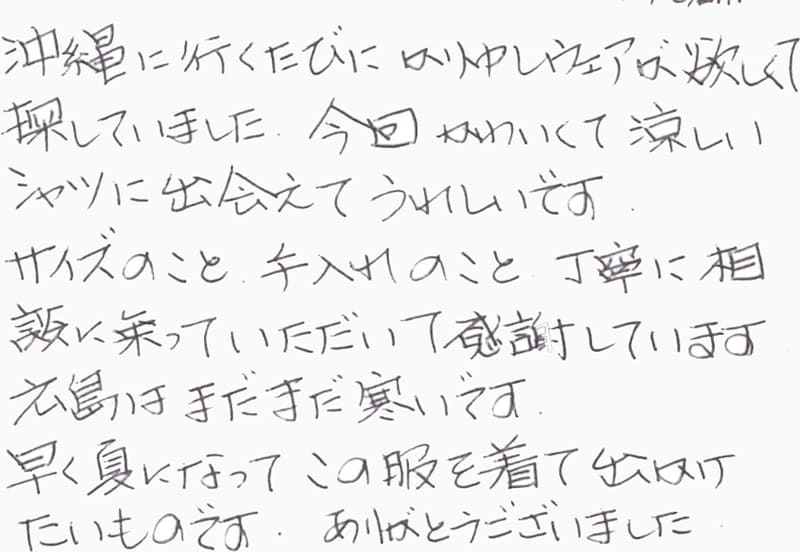 沖縄に行くたびに かりゆしウェアが欲しくて
探していました. 今回 かわいくて涼しい
シャツに出会えてうれしいです.
サイズのこと. 手入れのこと. 丁寧に相
談に乗っていただいて感謝しています
広島はまだまだ寒いです.
早く夏になってこの服を着て出かけ
たいものです. ありがとうございました.